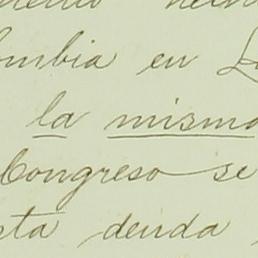 ombia en
la misma
Congreso se
ta deuda